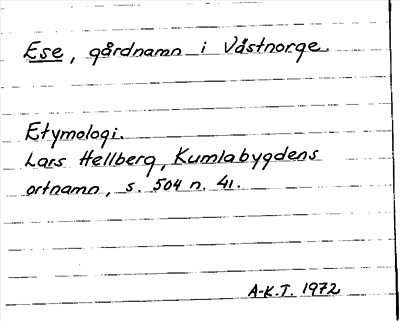 Ese, gårdnamn i Västnorge.
Etymologi.
Lars Hellberg, Kumlabygdens
ortnamn, s. 504 n. 41.
A-K.T. 1972